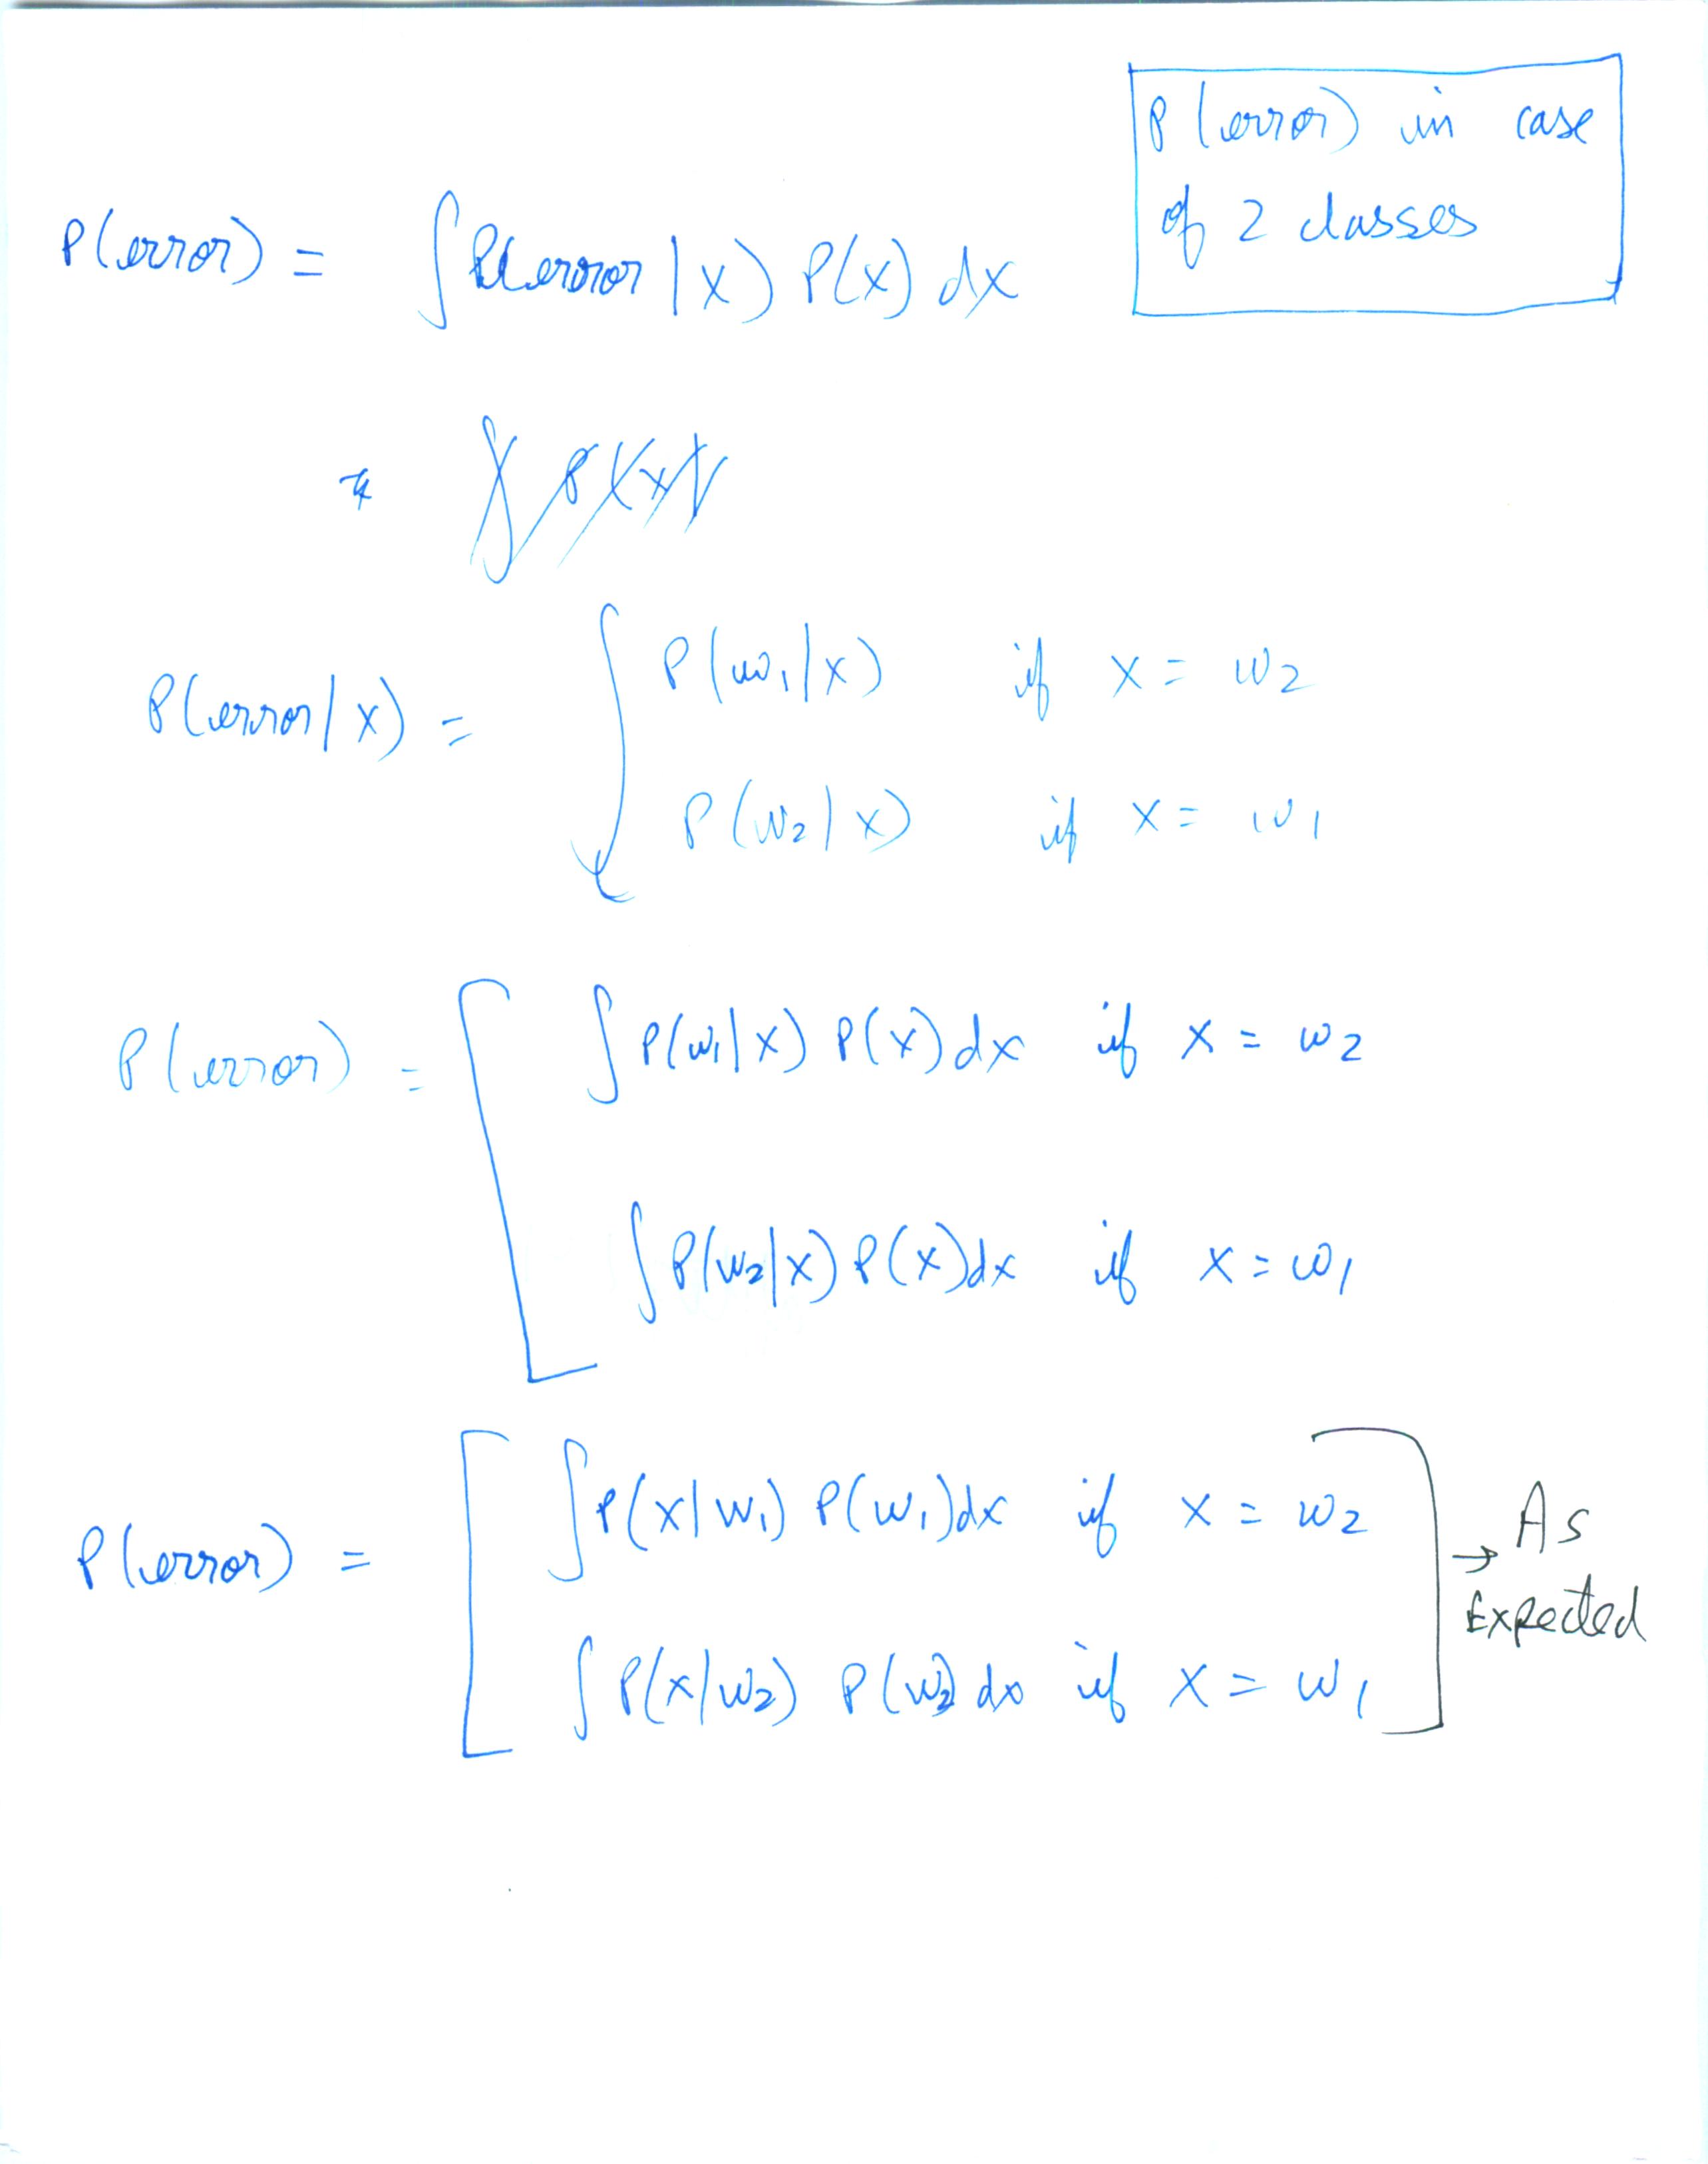 P(error) in case
of 2 classes
P(error) = ∫ P(error | x) P(x) dx
∫ P(x)
P(error | x) = { P(w₁ | x) if x = w₂
P(w₂ | x) if x = w₁
P(error) = [ ∫ P(w₁ | x) P(x) dx if x = w₂
∫ P(w₂ | x) P(x) dx if x = w₁
P(error) = [ ∫ P(x | w₁) P(w₁) dx if x = w₂
∫ P(x | w₂) P(w₂) dx if x = w₁ ]
→ As
Expected